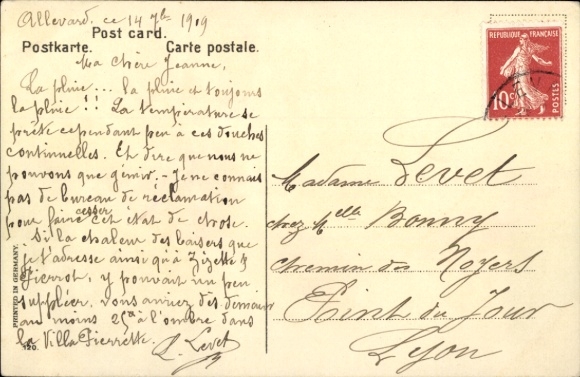 Allevard, ce 14 7bre 1909
Post card.
Postkarte. Carte postale.
Ma chère Jeanne,
La pluie... la pluie et toujours
la pluie!! La température se
prête cependant peu à ces douches
continuelles. Et dire que nous ne
pouvons que gémir. - Je ne connais
pas de bureau de réclamation
pour faire cesser cet état de chose.
Si la chaleur des baisers que
je t'adresse ainsi qu'à Zizette &
Pierrot, y pouvait un peu
suppléer, vous auriez dès demain
au moins 25° à l'ombre dans
la Villa Pierrette.
L. Levet
PRINTED IN GERMANY.
150.
REPUBLIQUE FRANÇAISE
10c
POSTES
Madame Levet
chez Melle Bonny
chemin des Noyers
Point du Jour
Lyon